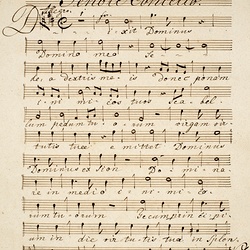 Tenore Concerto.
Dixit Dominus
Domino meo Se
de, a dextris meis donec ponam
i ni micos tuos sca bel
lum pedum tu o rum virgam vir
tutis tuæ e mittet Dominus
Dominus ex Sion Do mi na
re in medio i ni mico
rum tu o rum Tecum prin ci pi
um in die vir tutis tuæ in splen